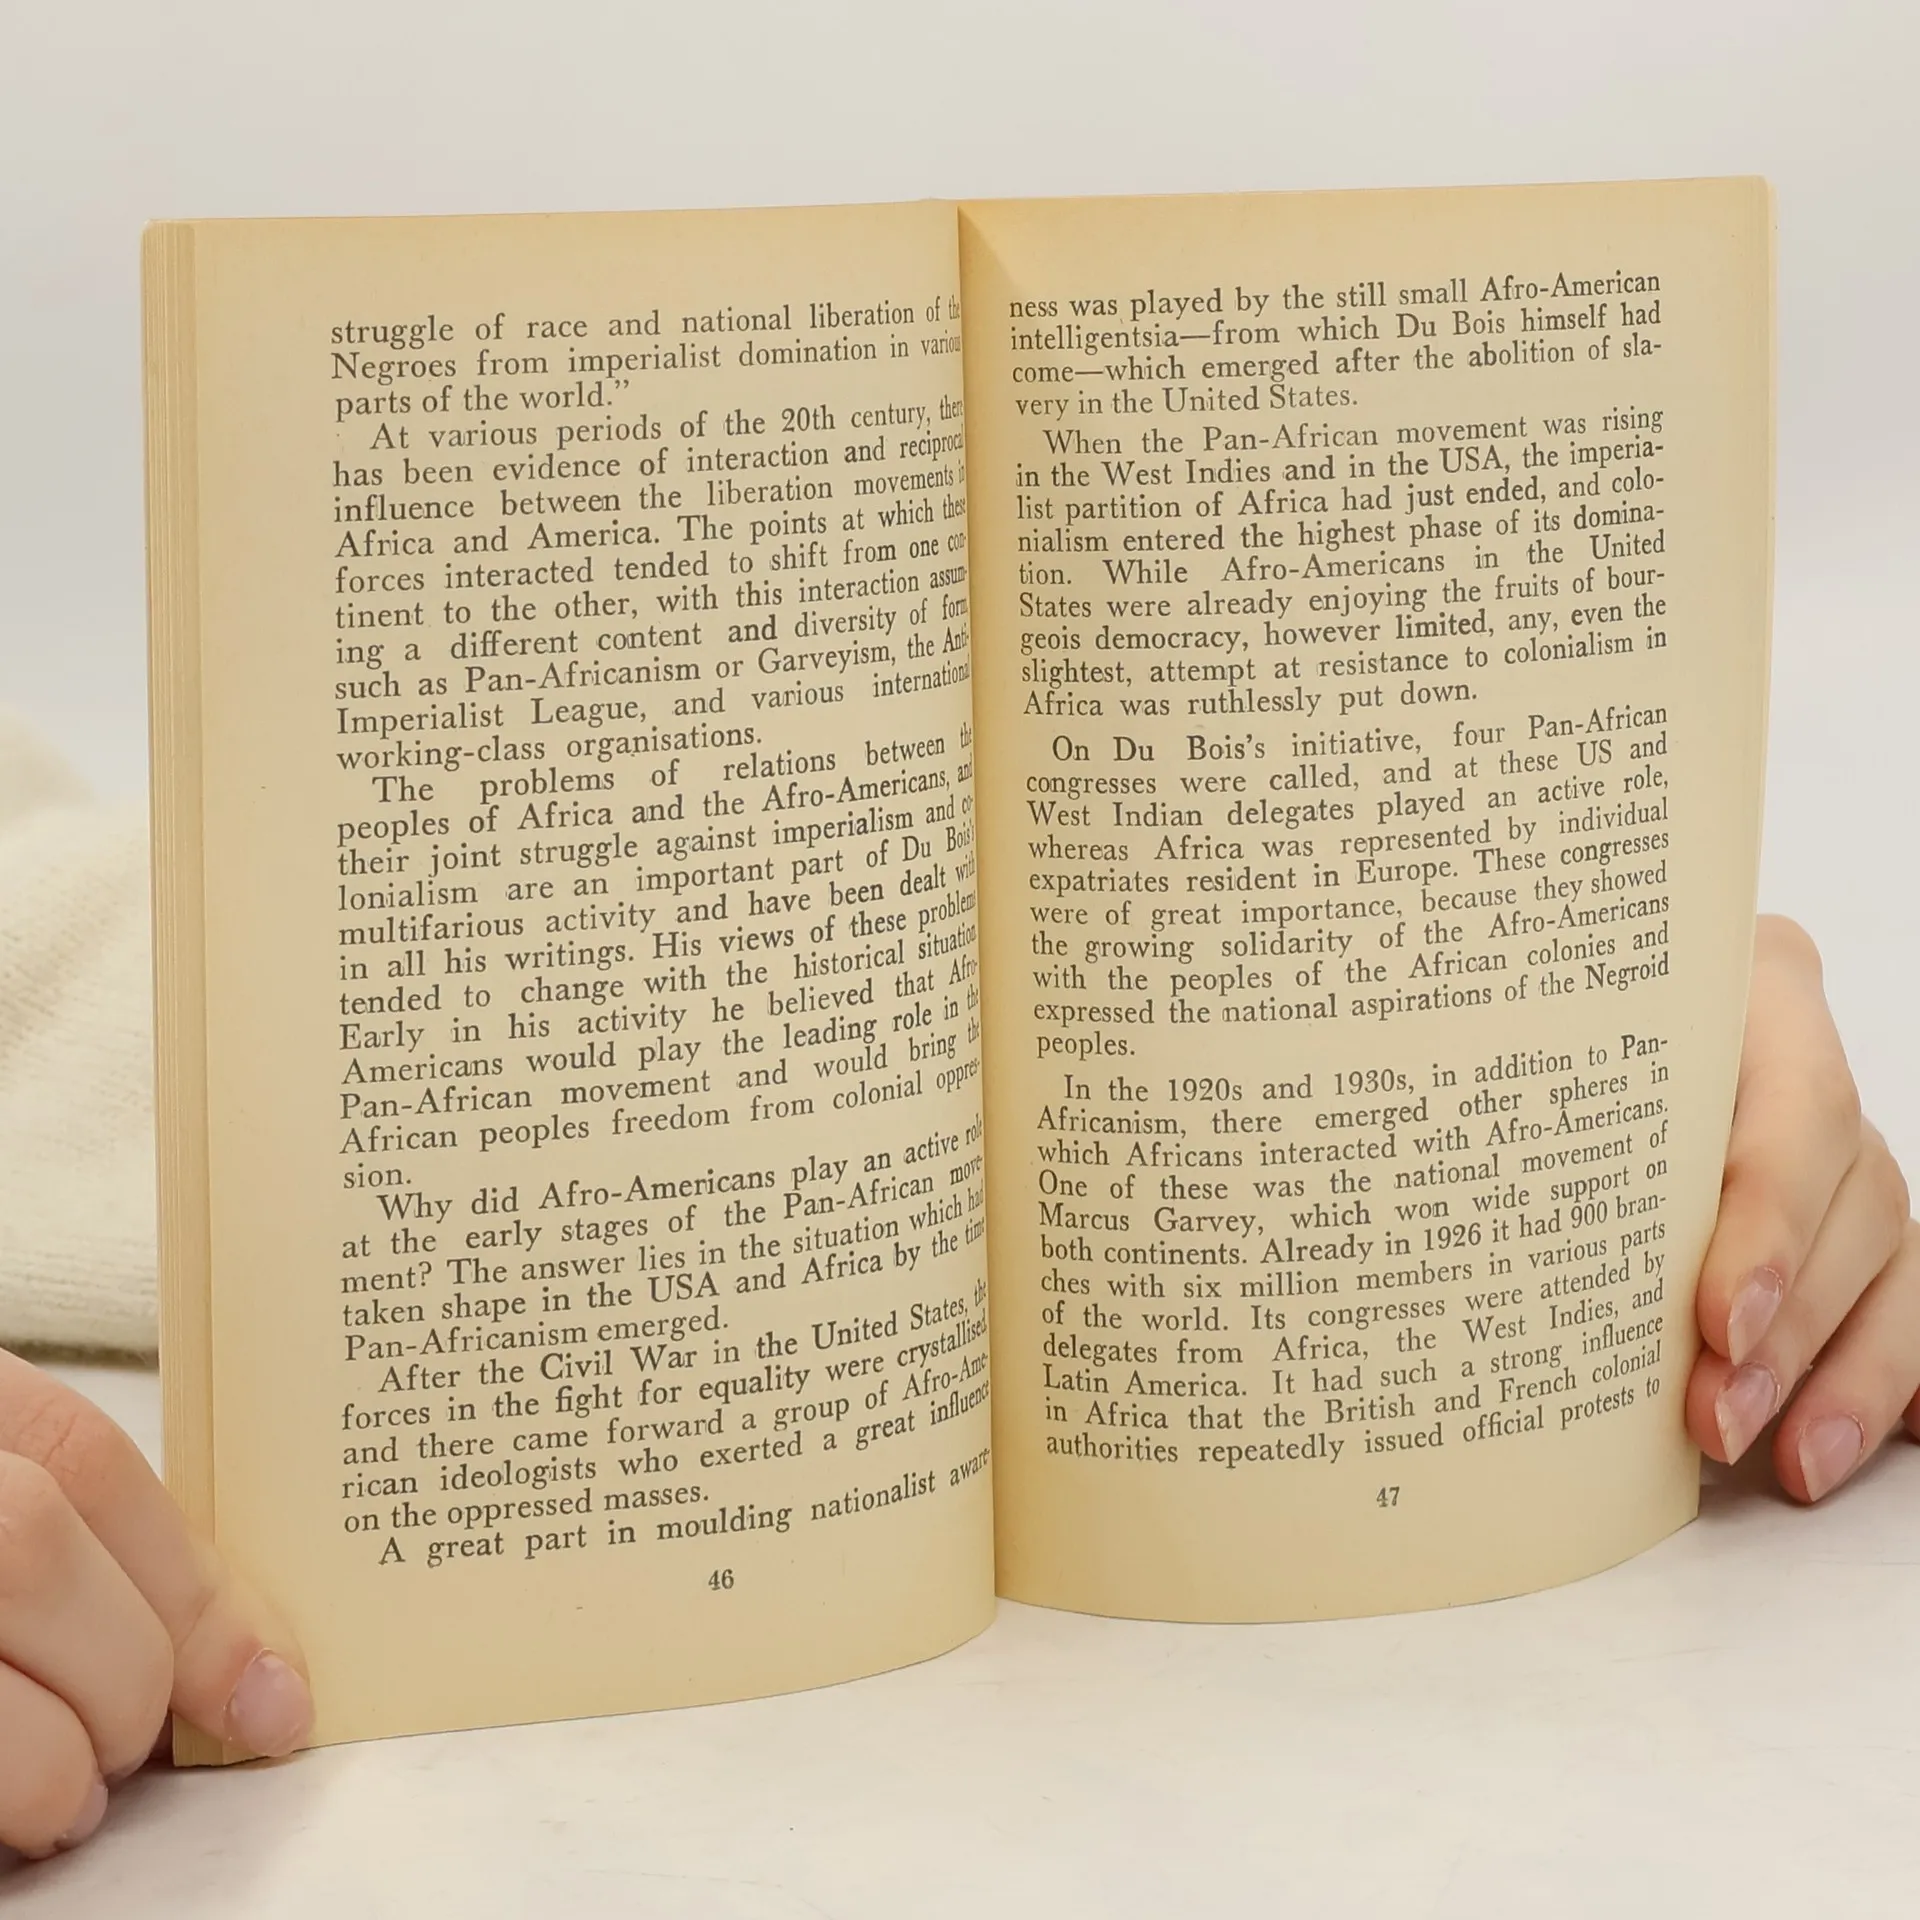 struggle of race and national liberation of the
Negroes from imperialist domination in various
parts of the world.”
At various periods of the 20th century, there
has been evidence of interaction and reciprocal
influence between the liberation movements in
Africa and America. The points at which these
forces interacted tended to shift from one con-
tinent to the other, with this interaction assum-
ing a different content and diversity of form
such as Pan-Africanism or Garveyism, the Anti-
Imperialist League, and various international
working-class organisations.
The problems of relations between the
peoples of Africa and the Afro-Americans, and
their joint struggle against imperialism and co-
lonialism are an important part of Du Bois's
multifarious activity and have been dealt with
in all his writings. His views of these problems
tended to change with the historical situation
Early in his activity he believed that Afro-
Americans would play the leading role in the
Pan-African movement and would bring the
African peoples freedom from colonial oppres-
sion.
Why did Afro-Americans play an active role
at the early stages of the Pan-African move-
ment? The answer lies in the situation which had
taken shape in the USA and Africa by the time
Pan-Africanism emerged.
After the Civil War in the United States, the
forces in the fight for equality were crystallised
and there came forward a group of Afro-Ame-
rican ideologists who exerted a great influence
on the oppressed masses.
A great part in moulding nationalist aware-
46
ness was played by the still small Afro-American
intelligentsia—from which Du Bois himself had
come—which emerged after the abolition of sla-
very in the United States.
When the Pan-African movement was rising
in the West Indies and in the USA, the imperia-
list partition of Africa had just ended, and colo-
nialism entered the highest phase of its domina-
tion. While Afro-Americans in the United
States were already enjoying the fruits of bour-
geois democracy, however limited, any, even the
slightest, attempt at resistance to colonialism in
Africa was ruthlessly put down.
On Du Bois's initiative, four Pan-African
congresses were called, and at these US and
West Indian delegates played an active role,
whereas Africa was represented by individual
expatriates resident in Europe. These congresses
were of great importance, because they showed
the growing solidarity of the Afro-Americans
with the peoples of the African colonies and
expressed the national aspirations of the Negroid
peoples.
In the 1920s and 1930s, in addition to Pan-
Africanism, there emerged other spheres in
which Africans interacted with Afro-Americans.
One of these was the national movement of
Marcus Garvey, which won wide support on
both continents. Already in 1926 it had 900 bran-
ches with six million members in various parts
of the world. Its congresses were attended by
delegates from Africa, the West Indies, and
Latin America. It had such a strong influence
in Africa that the British and French colonial
authorities repeatedly issued official protests to
47